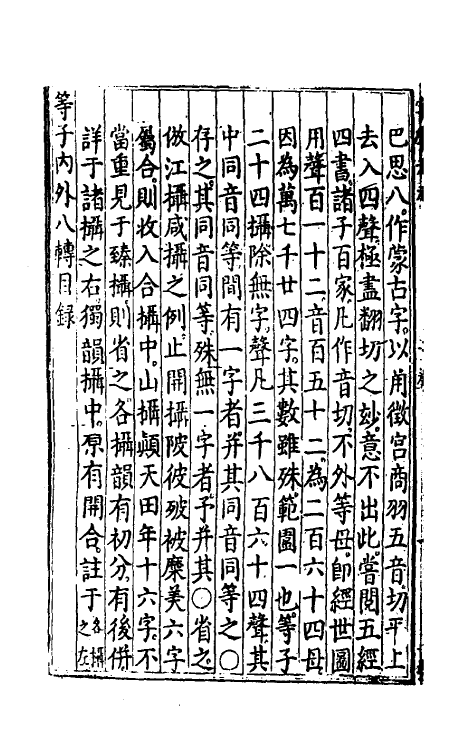 巴思八。作蒙古字。以角徵宮商羽五音。切平上
去入四聲。極盡翻切之妙。意不出此。嘗閱五經
四書。諸子百家。凡作音切不外等母。卽經世圖
用聲百一十二。音百五十二。為二百六十四母。
因為萬七千廿四字。其數雖殊。範圍一也。等子
二十四攝。除無字。聲凡三千八百六十四聲。其
中同音同等。間有一字者。并其同音同等之〇
存之。其同音同等。殊無一字者。予并其〇省之。
倣江攝咸攝之例。止開攝陂彼破被糜美六字
屬合。則收入合攝中。山攝顛天田年十六字。不
當重見于臻攝。則省之。各攝韻有初分。有後併
詳于諸攝之右。獨韻攝中。原有開合。註于各攝之左
等子內外八轉目録